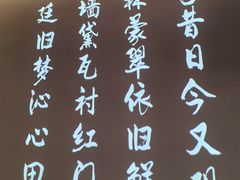 昔日今又
蒙翠依旧鲜
墙黛瓦衬红门
廷旧梦沁心田